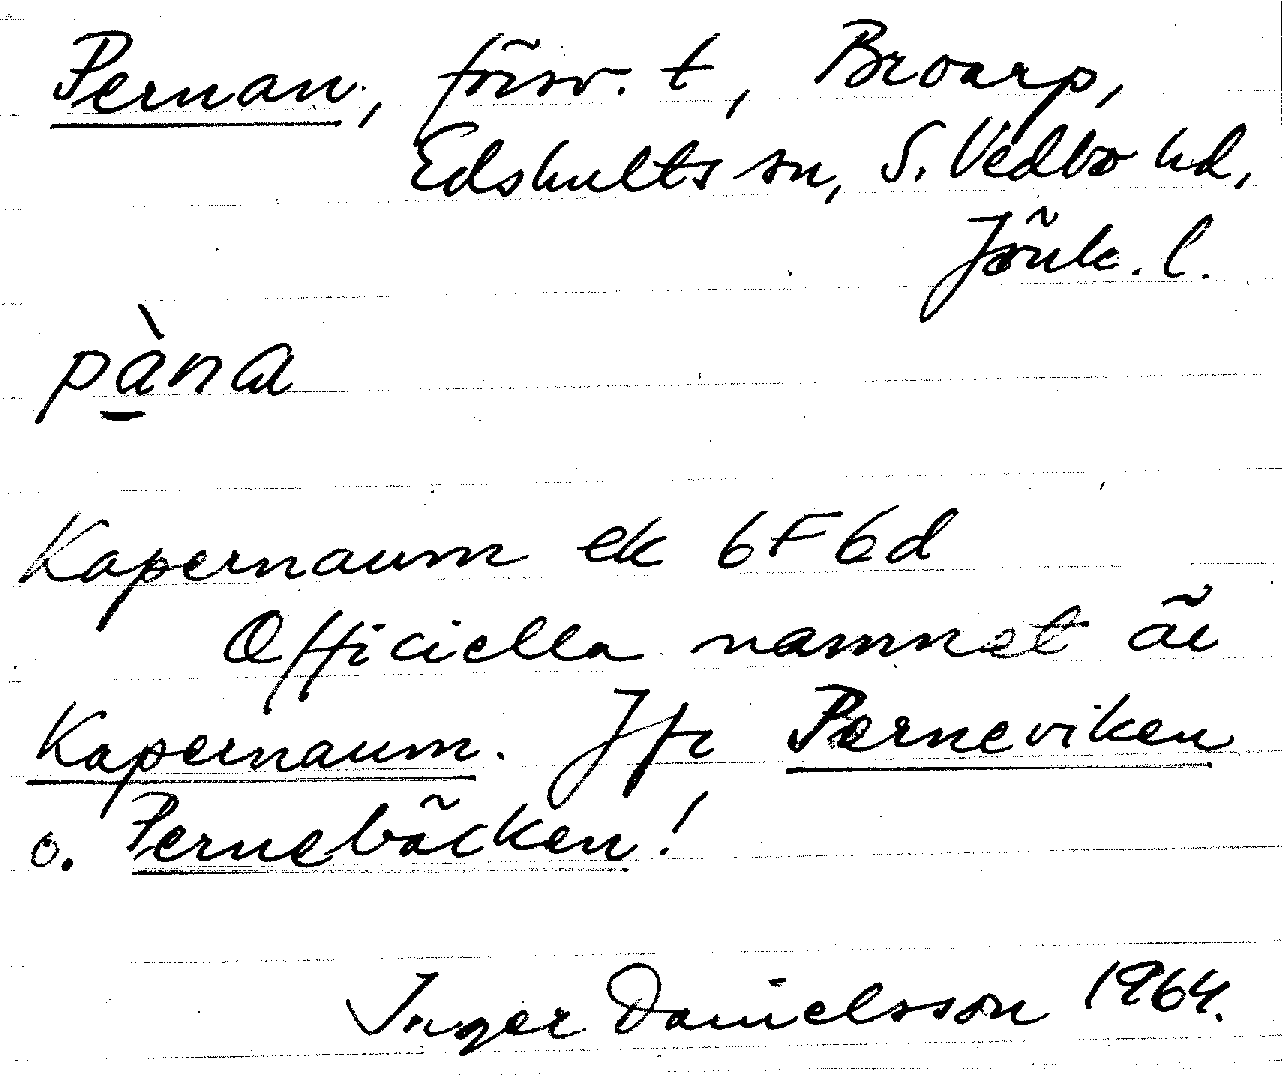 Pernan, försv. t, Broarp,
Edshults sn, S. Vedbo hd,
Jönk. l.
pàna
Kapernaum ek 6F6d
Officiella namnet är
Kapernaum. Jfr Perneviken
o. Pernebäcken!
Inger Danielsson 1964.